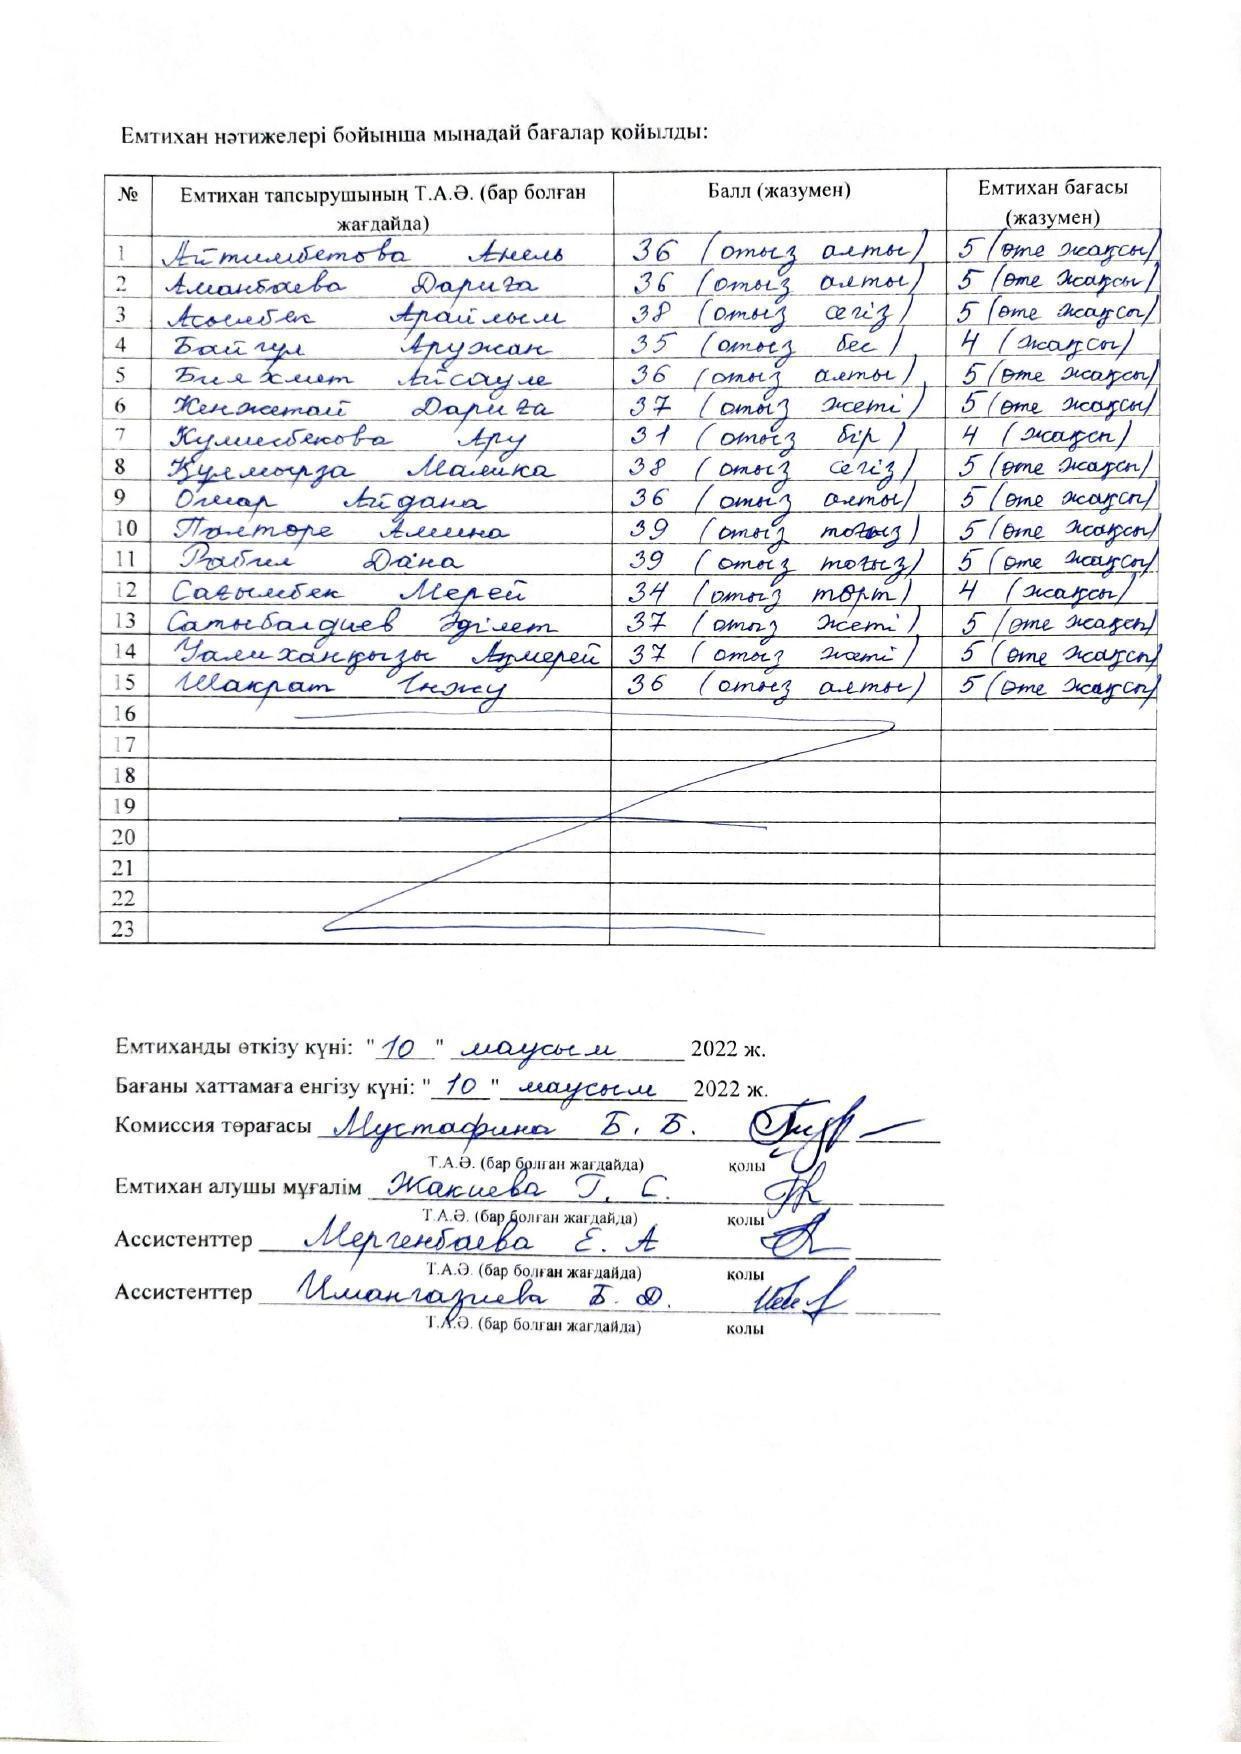 Емтихан нәтижелері бойынша мынадай бағалар қойылды:
№ Емтихан тапсырушының Т.А.Ә. (бар болған жағдайда) Балл (жазумен) Емтихан бағасы (жазумен)
1 Айтимбетова Анель 36 (отыз алты) 5 (өте жақсы)
2 Аманбаева Дариға 36 (отыз алты) 5 (өте жақсы)
3 Асылбек Арайлым 38 (отыз сегіз) 5 (өте жақсы)
4 Байгул Аружан 35 (отыз бес) 4 (жақсы)
5 Бияхмет Айсәуле 36 (отыз алты) 5 (өте жақсы)
6 Кенжетай Дариға 37 (отыз жеті) 5 (өте жақсы)
7 Ару 31 (отыз бір) 4 (жақсы)
8 Құлмырза Малика 38 (отыз сегіз) 5 (өте жақсы)
9 Омар Айдана 36 (отыз алты) 5 (өте жақсы)
10 Палторе Амина 39 (отыз тоғыз) 5 (өте жақсы)
11 Рабил Дана 39 (отыз тоғыз) 5 (өте жақсы)
12 Сағымбек Мерей 34 (отыз төрт) 4 (жақсы)
13 Сатыбалдиев Әділет 37 (отыз жеті) 5 (өте жақсы)
14 Уалиханқызы Ақмерей 37 (отыз жеті) 5 (өте жақсы)
15 Шакрат Інжу 36 (отыз алты) 5 (өте жақсы)
16
17
18
19
20
21
22
23
Емтиханды өткізу күні: "10" маусым 2022 ж.
Бағаны хаттамаға енгізу күні: "10" маусым 2022 ж.
Комиссия төрағасы Мустафина Б. Б.
Т.А.Ә. (бар болған жағдайда) қолы
Емтихан алушы мұғалім Жакиева Г. С.
Т.А.Ә. (бар болған жағдайда) қолы
Ассистенттер Мергенбаева Е. А
Т.А.Ә. (бар болған жағдайда) қолы
Ассистенттер Имангазиева Б. Д.
Т.А.Ә. (бар болған жағдайда) қолы